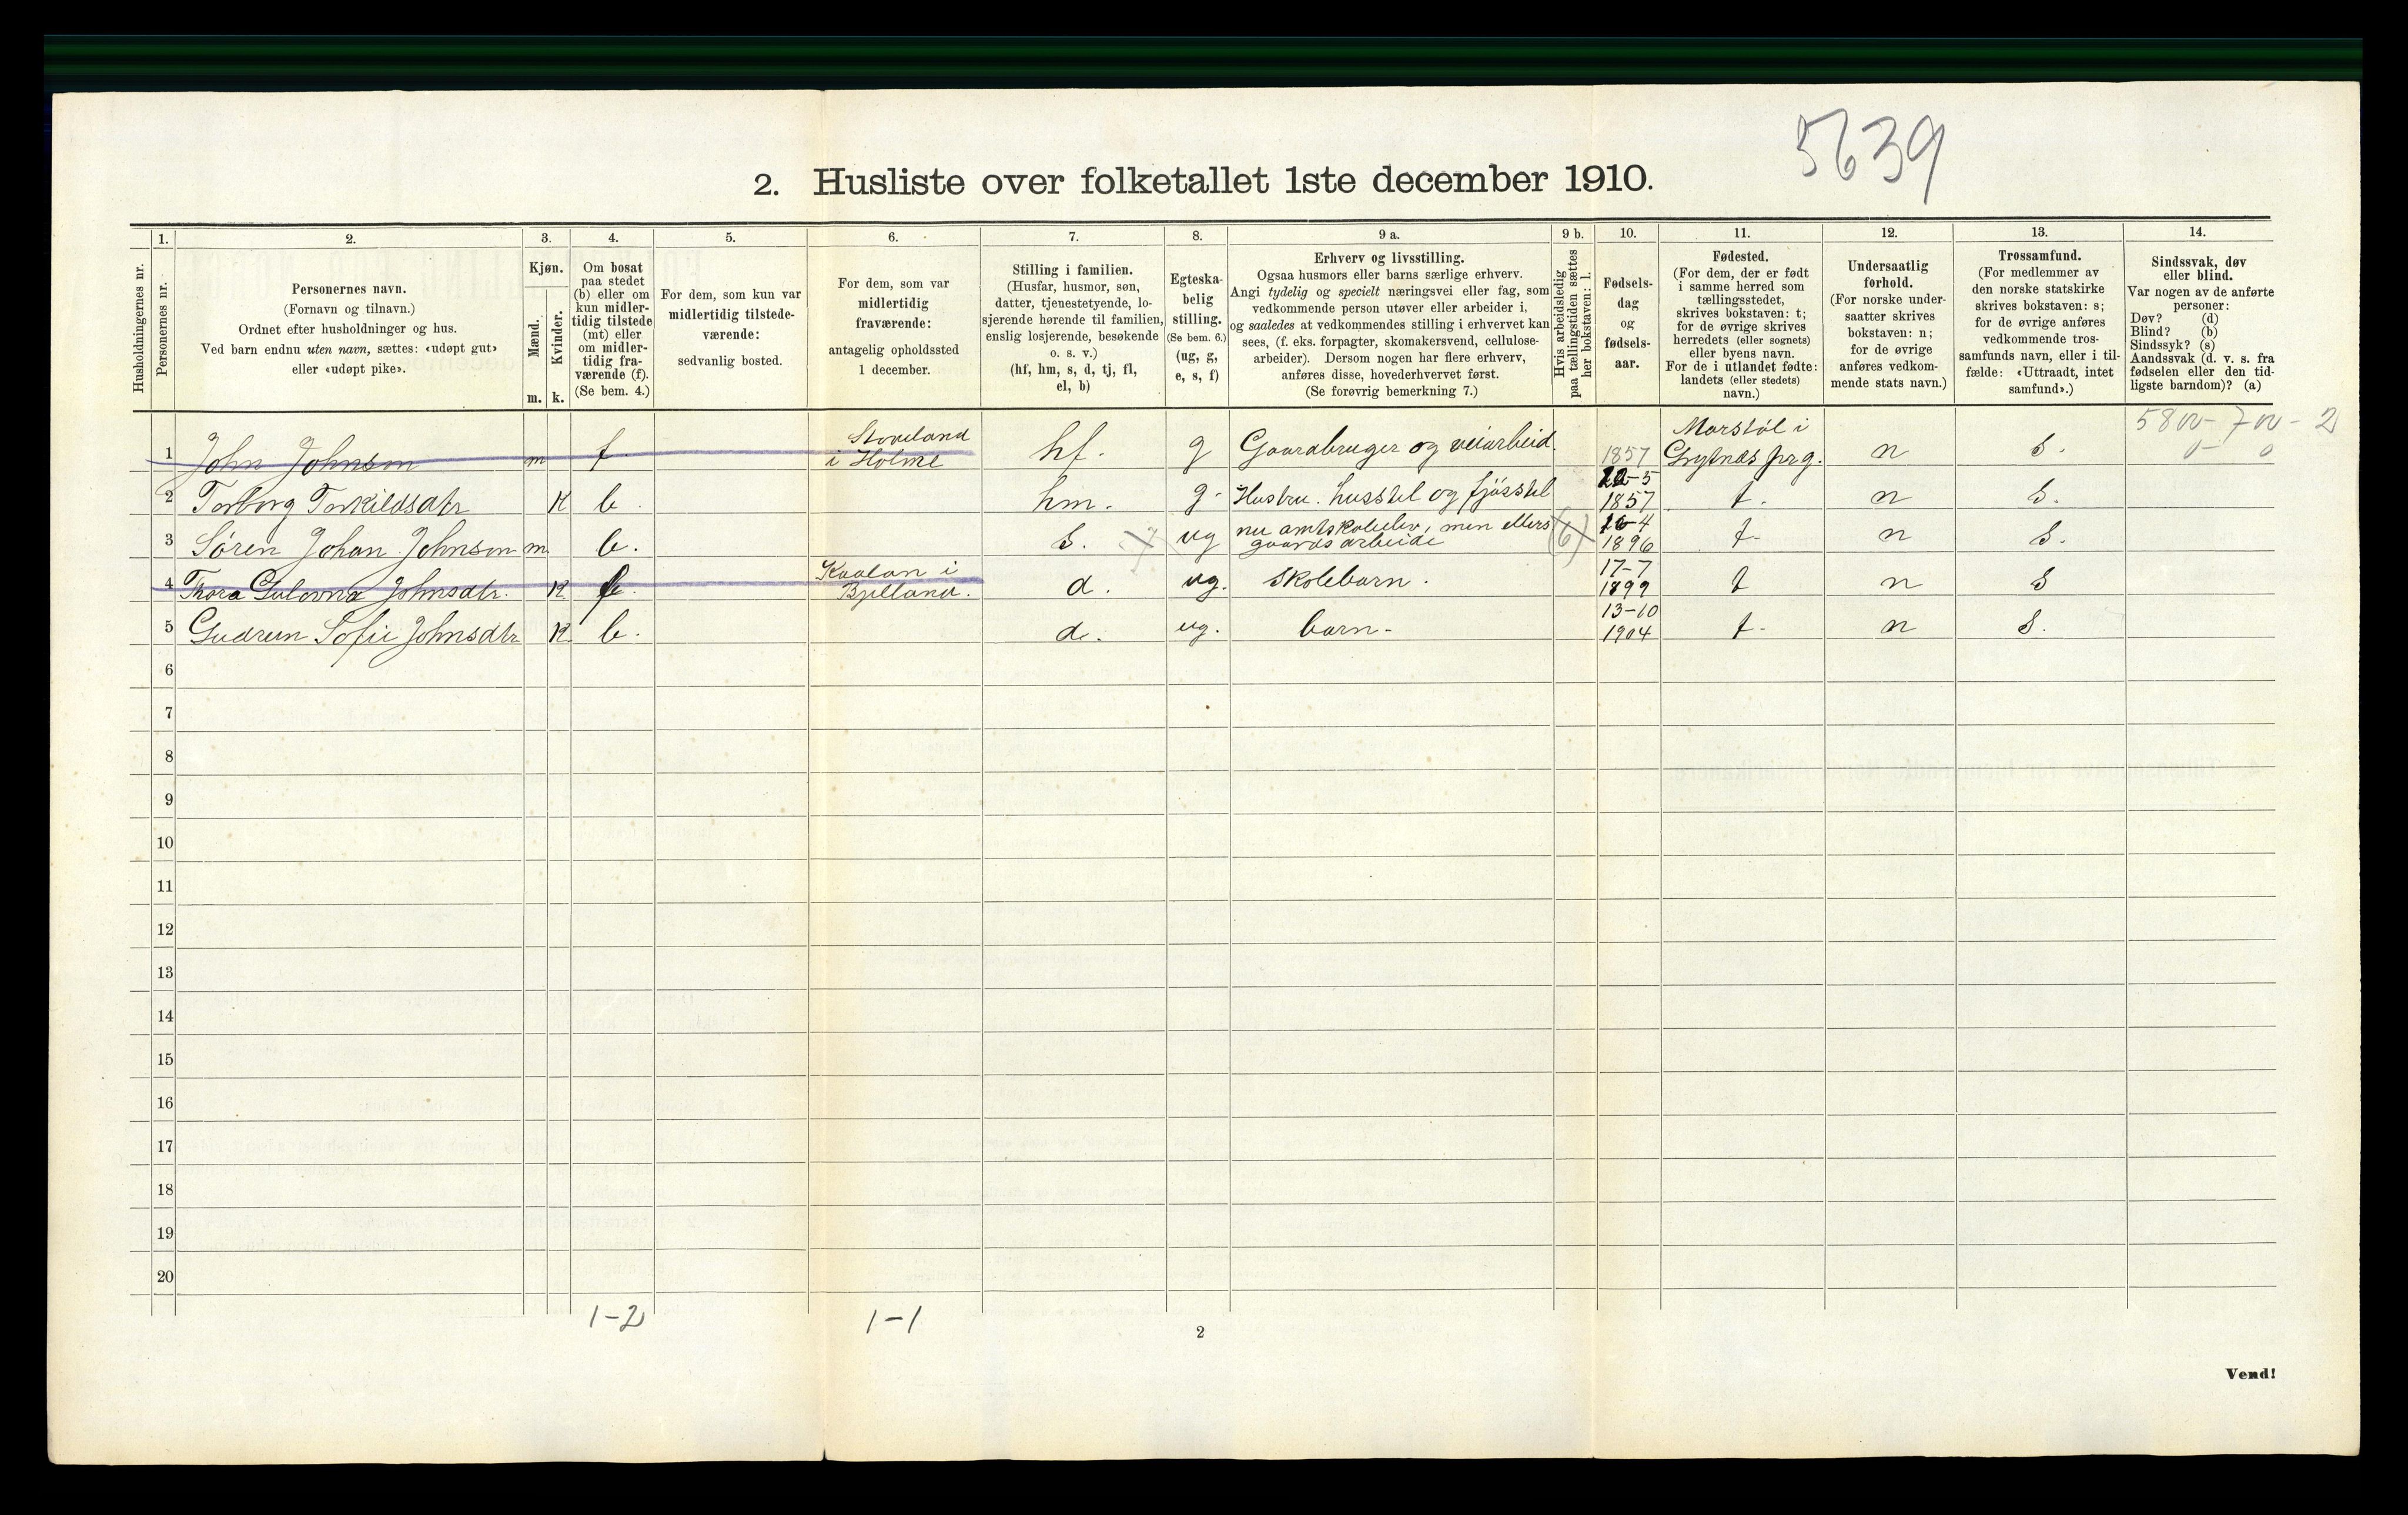 5639
2. Husliste over folketallet 1ste december 1910.
1.
2.
3.
4.
5.
6.
7.
8.
9 a.
9 b.
10.
11.
12.
13.
14.
Husholdningernes nr.
Personernes nr.
Personernes navn.
(Fornavn og tilnavn.)
Ordnet efter husholdninger og hus.
Ved barn endnu uten navn, sættes: «udøpt gut»
eller «udøpt pike».
Kjøn.
Mænd.
Kvinder.
m. k.
Om bosat
paa stedet
(b) eller om
kun midler-
tidig tilstede
(mt) eller
om midler-
tidig fra-
værende (f).
(Se bem. 4.)
For dem, som kun var
midlertidig tilstede-
værende:
sedvanlig bosted.
For dem, som var
midlertidig
fraværende:
antagelig opholdssted
1 december.
Stilling i familien.
(Husfar, husmor, søn,
datter, tjenestetyende, lo-
sjerende hørende til familien,
enslig losjerende, besøkende
o. s. v.)
(hf, hm, s, d, tj, fl,
el, b)
Egteska-
belig
stilling.
(Se bem. 6.)
(ug, g,
e, s, f)
Erhverv og livsstilling.
Ogsaa husmors eller barns særlige erhverv.
Angi tydelig og specielt næringsvei eller fag, som
vedkommende person utøver eller arbeider i,
og saaledes at vedkommendes stilling i erhvervet kan
sees, (f. eks. forpagter, skomakersvend, cellulose-
arbeider). Dersom nogen har flere erhverv,
anføres disse, hovederhvervet først.
(Se forøvrig bemerkning 7.)
Hvis arbeidsledig
paa tællingstiden sættes
her bokstaven: l.
Fødsels-
dag
og
fødsels-
aar.
Fødested.
(For dem, der er født
i samme herred som
tællingsstedet,
skrives bokstaven: t;
for de øvrige skrives
herredets (eller sognets)
eller byens navn.
For de i utlandet fødte:
landets (eller stedets)
navn.)
Undersaatlig
forhold.
(For norske under-
saatter skrives
bokstaven: n;
for de øvrige
anføres vedkom-
mende stats navn.)
Trossamfund.
(For medlemmer av
den norske statskirke
skrives bokstaven: s;
for de øvrige anføres
vedkommende tros-
samfunds navn, eller i til-
fælde: «Uttraadt, intet
samfund».)
Sindssvak, døv
eller blind.
Var nogen av de anførte
personer:
Døv? (d)
Blind? (b)
Sindssyk? (s)
Aandssvak (d. v. s. fra
fødselen eller den tid-
ligste barndom)? (a)
5800-700-2
0- 0
1 John Johnson m f. Stoveland i Holme hf. g Gaardbruger og veiarbeid. 1857 i n s.
2 Torborg Torkildsdtr K b. hm. g. Hustru. husstel og fjösstel 22-5 1857 t. n s.
3 Søren Johan Johnson m b. s. ug nu amtskoleelev, men ellers gaardsarbeide (6) 16-4 1896 t. n s.
4 Thora Johnsdtr. K f. i Bjelland. d. ug. skolebarn. 17-7 1899 t n s
5 Gudrun Sofie Johnsdtr K b. d. ug. barn. 13-10 1904 t. n s.
6
7
8
9
10
11
12
13
14
15
16
17
18
19
20
1-2
1-1
2
Vend!